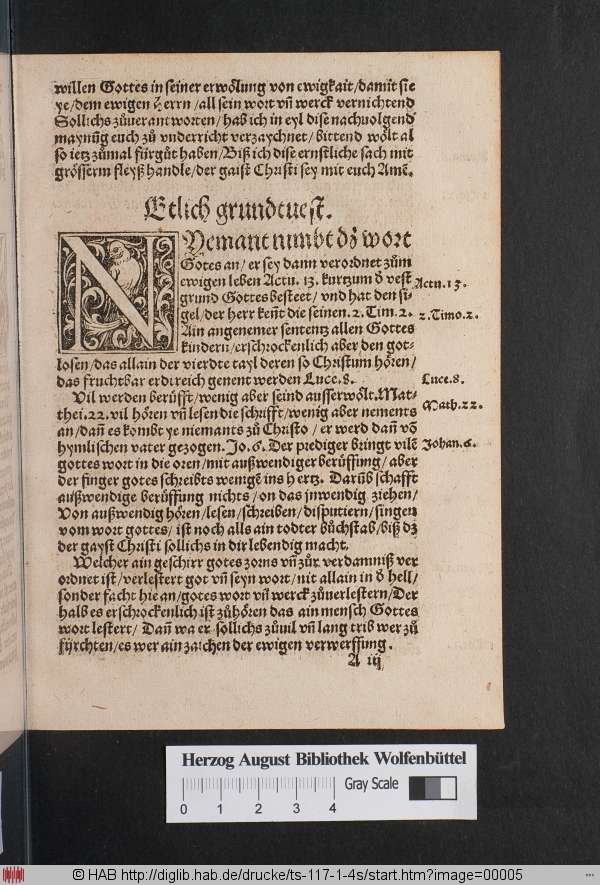 willen Gottes in seiner erwölung von ewigkait/damit sie
ye/dem ewigen Herrn/all sein wort vñ werck vernichtend
Sollichs zůuerantworten/hab ich in eyl dise nachuolgend
maynũg euch zů vnderricht verzaychnet/bittend wölt al
so ietz zůmal fürgůt haben/Biß ich dise ernstliche sach mit
grösserm fleyß handle/der gaist Christi sey mit euch Amẽ.
Etlich grundtuest.
NYemant nimbt dz wort
Gotes an/er sey dann verordnet zům
ewigen leben Actu. 13. kurtzum d vest
grund Gottes besteet/vnd hat den si-
gel/der herr keñt die seinen. 2. Tim. 2.
Ain angenemer sententz allen Gottes
kindern/erschrockenlich aber den got-
losen/das allain der vierdte tayl deren so Christum hören/
das fruchtbar erdtreich genent werden Luce. 8.
Vil werden berüfft/wenig aber seind ausserwölt. Mat-
thei. 22. vil hören vñ lesen die schrifft/wenig aber nements
an/dañ es kombt ye niemants zů Christo/er werd dañ võ
hymlischen vater gezogen. Jo. 6. Der prediger bringt vilẽ
gottes wort in die oren/mit außwendiger berüffung/aber
der finger gotes schreibts wenigẽ ins hertz. Darũb schafft
außwendige berüffung nichts/on das jnwendig ziehen/
Von außwendig hören/lesen/schreiben/disputiern/singen
vom wort gottes/ist noch alls ain todter bůchstab/biß dz
der gayst Christi sollichs in dir lebendig macht.
Welcher ain geschirr gotes zorns vñ zůr verdamniß ver
ordnet ist/verlestert got vñ seyn wort/nit allain in d hell/
sonder facht hie an/gotes wort vñ werck zůuerlestern/Der
halb es erschrockenlich ist zůhören das ain mensch Gottes
wort lestert/Dañ wa er sollichs zůuil vñ lang trib wer zů
fürchten/es wer ain zaichen der ewigen verwerffung.
A iij
Actu. 13.
2. Timo. 2.
Luce. 8.
Math. 22.
Johan. 6.
Herzog August Bibliothek Wolfenbüttel
0 1 2 3 4 Gray Scale
© HAB http://diglib.hab.de/drucke/ts-117-1-4s/start.htm?image=00005